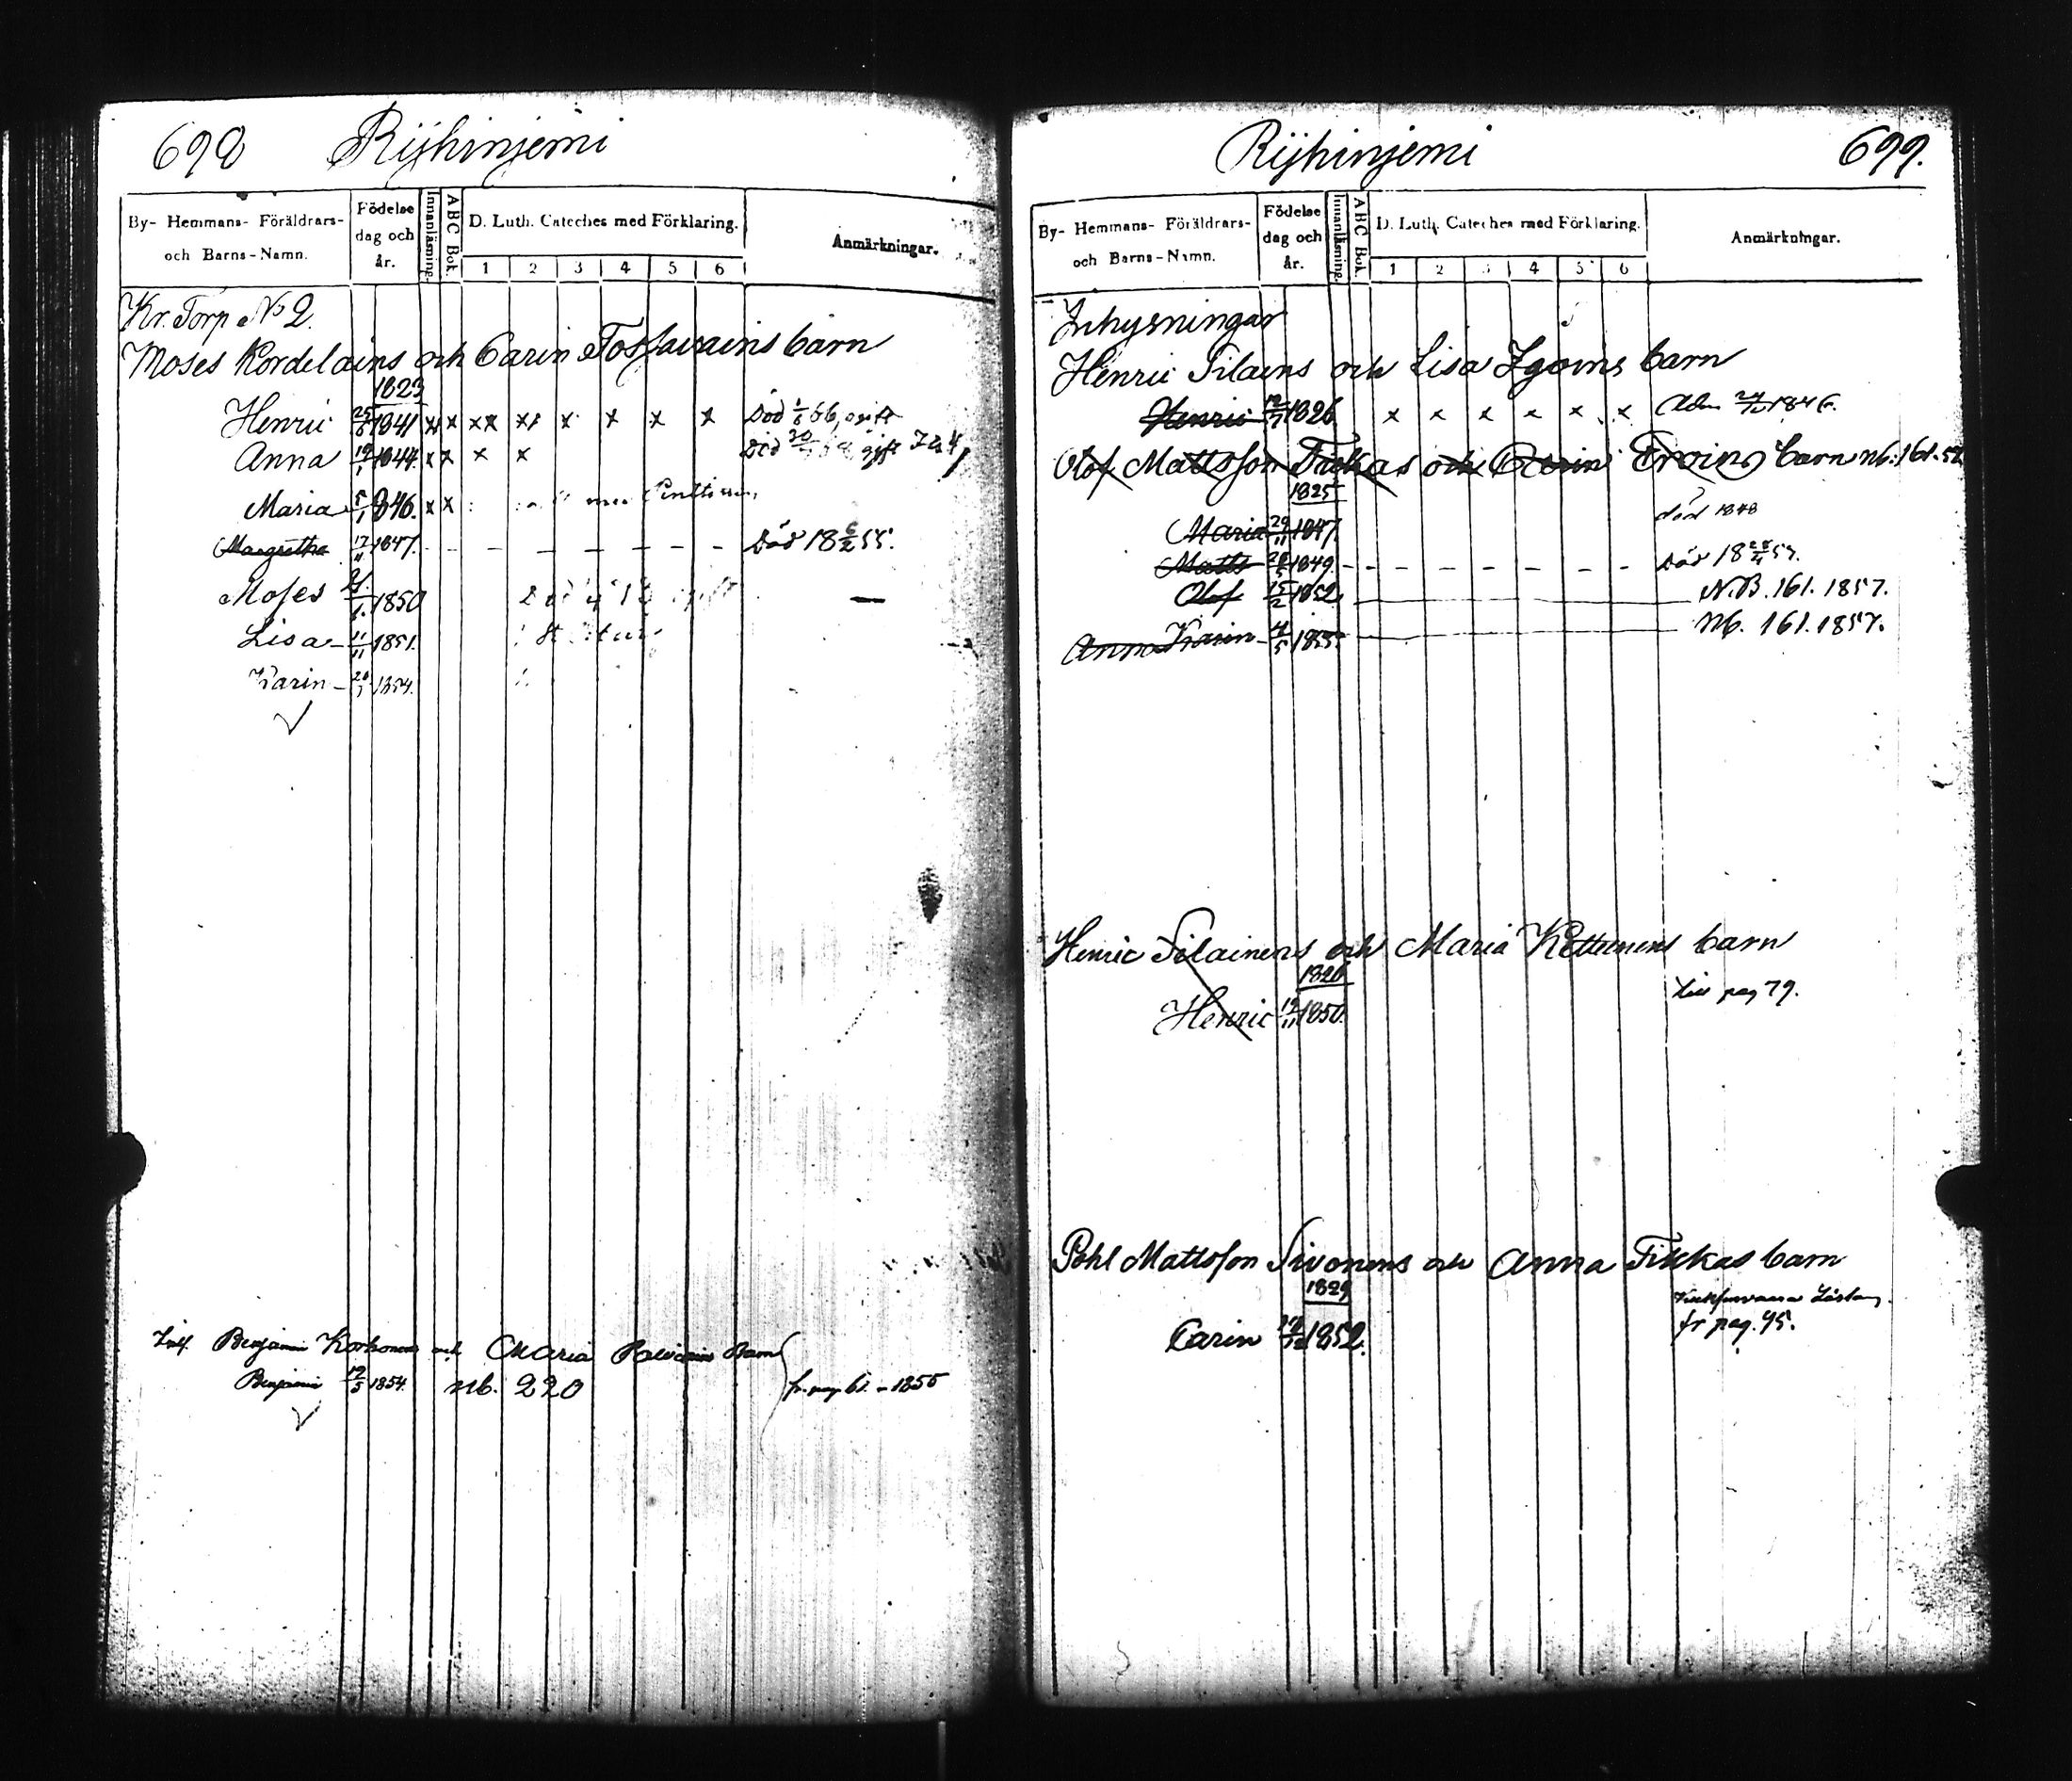 698 Rijhinjemi
By- Hemmans- Föräldrars- och Barns-Namn. Födelse dag och år. Innanläsning. A B C Bok. D. Luth. Cateches med Förklaring. 1 2 3 4 5 6 Anmärkningar.
Kr. Torp No 2.
Moses Kordelains och Carin barn
1823
Henric 25/6 1841 x x xx x x x x x Död 1/6 66, ogift
Anna 19/1 1844. x x x x Död gift
Maria 5/1 1846. x x
Margretha 17/11 1847. - - - - - - - Död 18 6/2 55.
Moses 1850 —
Lisa 11/11 1851.
Karin 1854.
Benjamin Korhonens och Maria Barn
Benjamin 12/5 1854. nb. 220 fr. pag 61. - 1855
Rijhinjemi 699.
By- Hemmans- Föräldrars- och Barns-Namn. Födelse dag och år. Innanläsning. A B C Bok. D. Luth. Cateches med Förklaring. 1 2 3 4 5 6 Anmärkningar.
Inhysningar
Henric Silains och Lisa barn
Henric 12/7 1826. x x x x x x Adm 1846.
Olof Mattsson Tikkas och Carin barn nb. 161. 52
1825
Maria 29/11 1847. död 1848
Matts 1849. - - - - - - - Död 18 57.
Olof 15/2 1852. N.B. 161. 1857.
Anna Karin 1855. Nb. 161. 1857.
Henric Silainens och Maria Kettunens barn
1826
Henric 19/11 1850. till pag 79.
Pohl Mattsson Sivonens och Anna Tikkas barn
1829
Carin 1852. fr pag. 95.